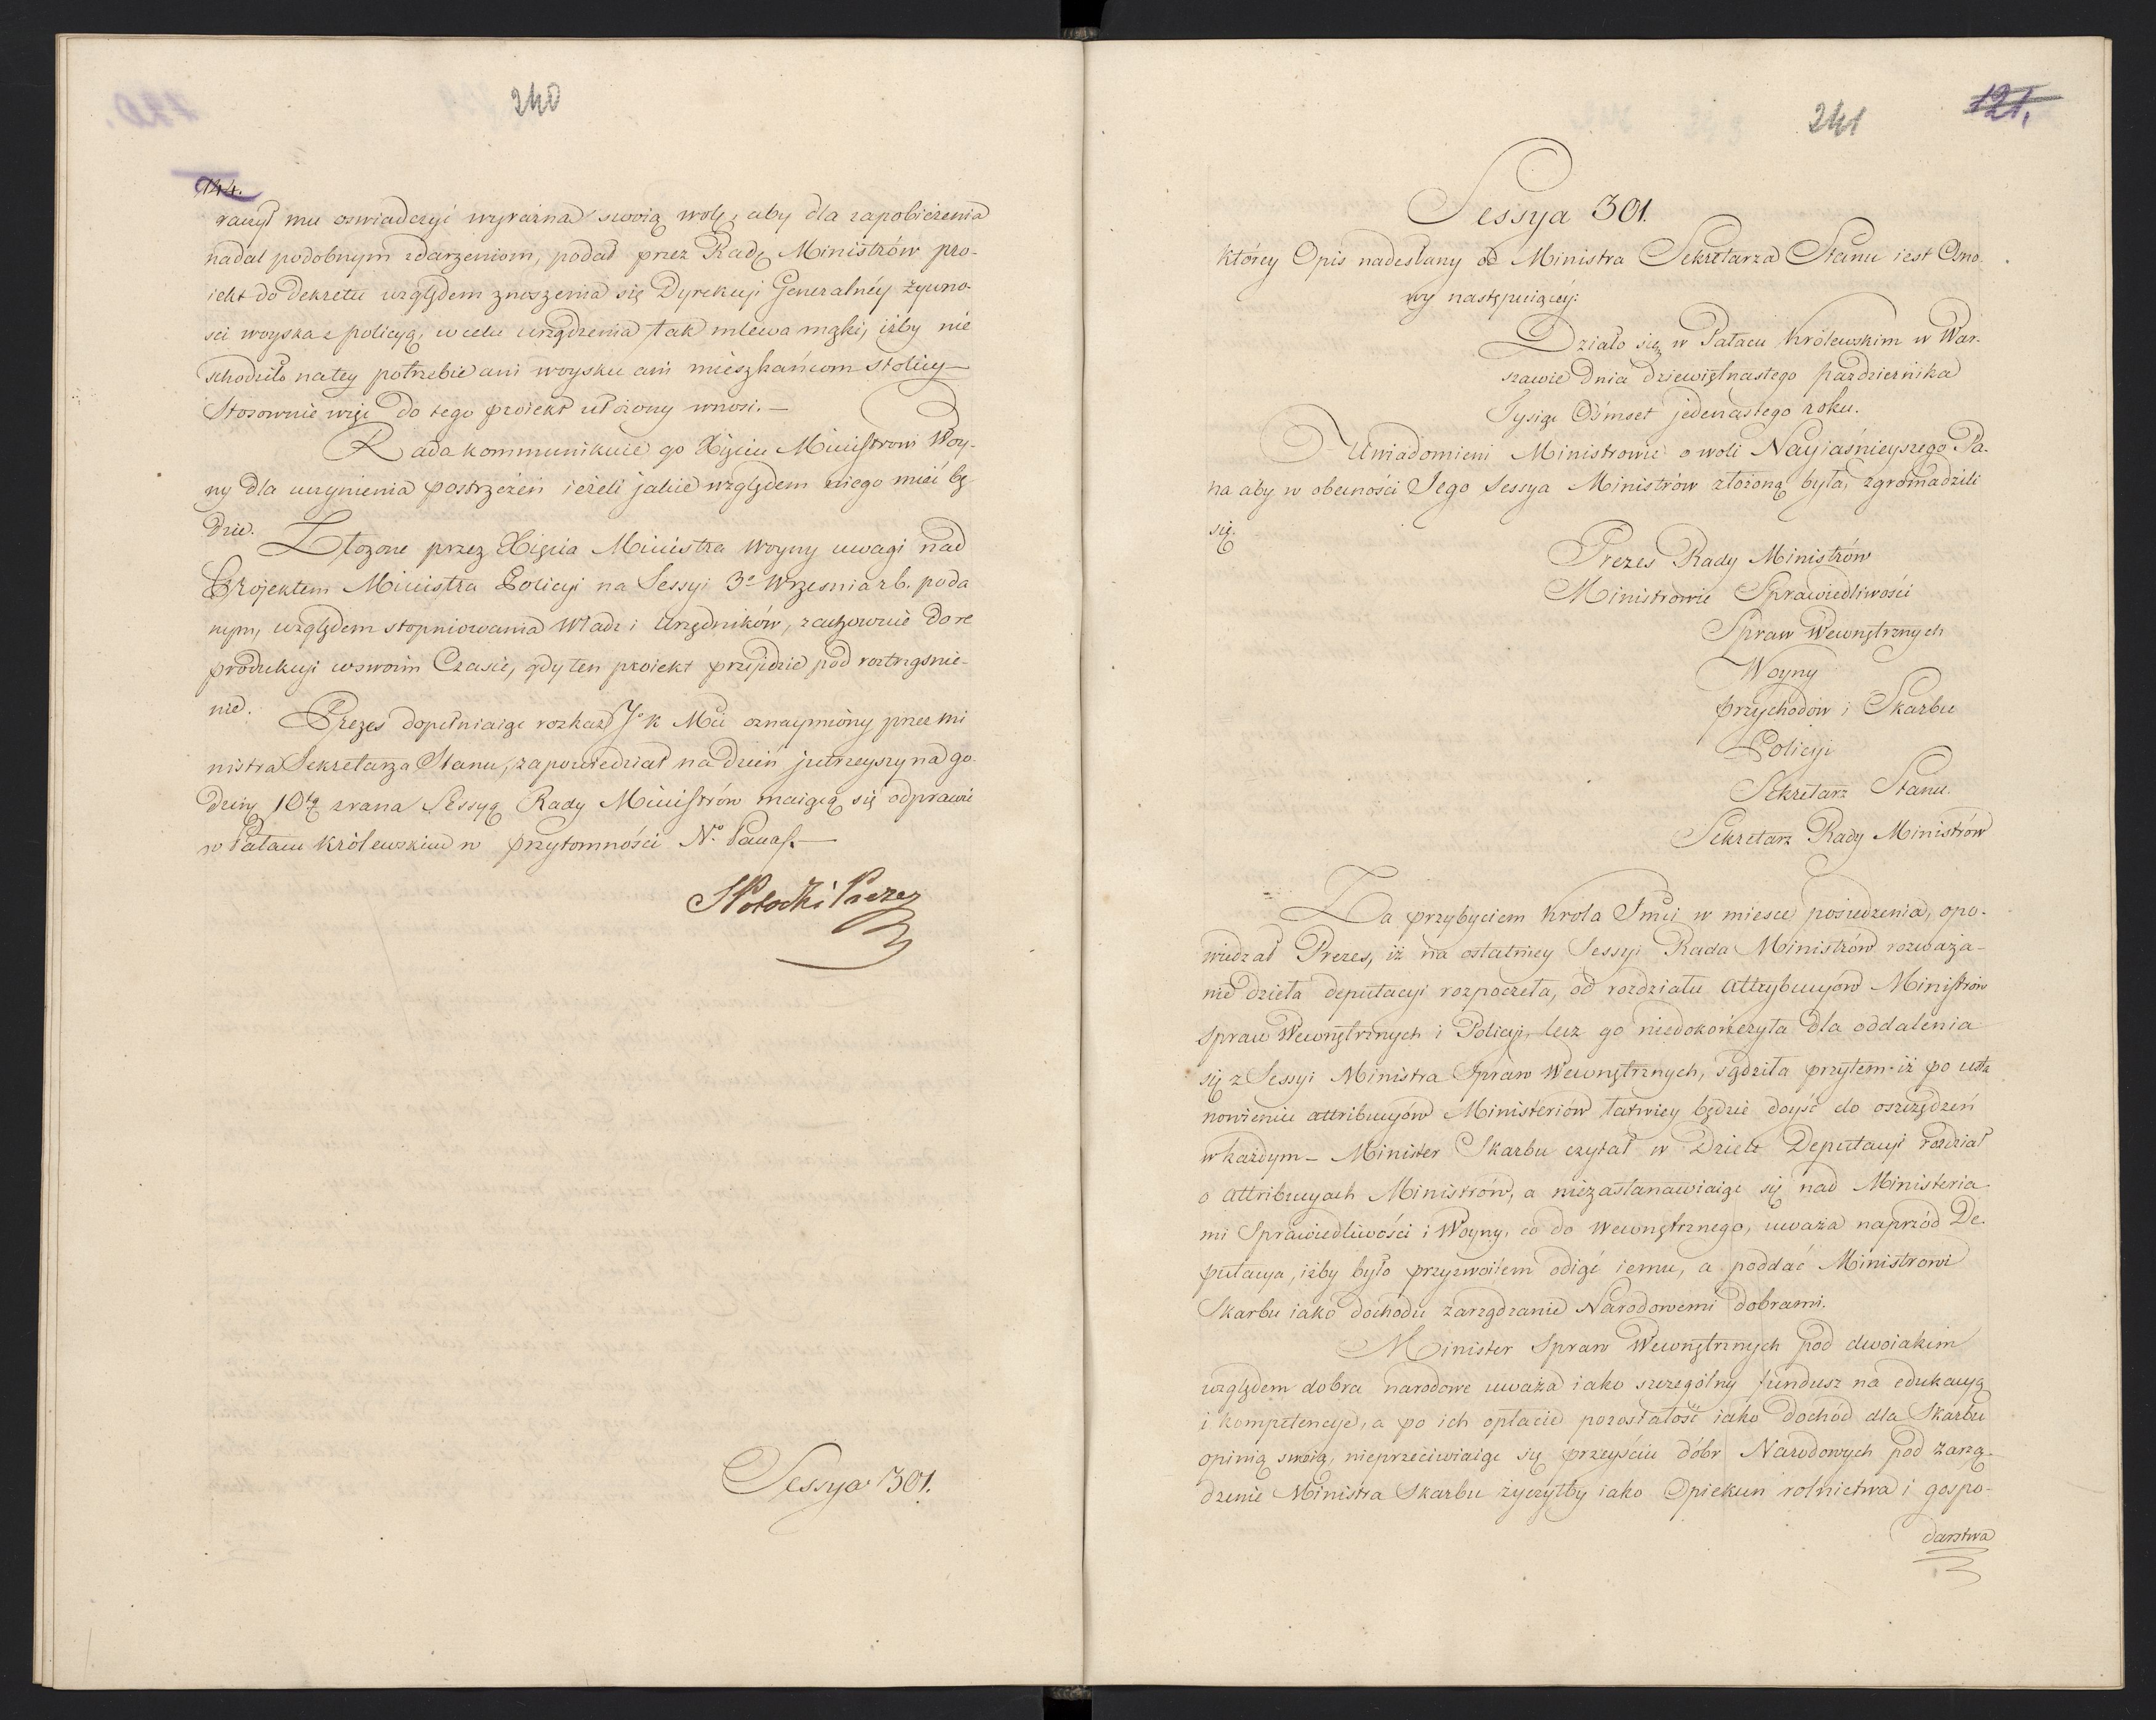 240
144.
raczył mu oswiadczyć wyrażną swoią wolę, aby dla zapobieżenia
nadal podobnym zdarzeniom, podał przez Radę Ministrów pro-
iekt do dekretu względem znoszenia się Dyrekcyi Generalnéy żywno-
sci woyska z policyą, w celu urządzenia tak mlewa mąki, iżby nie
schodziło na tey potrzebie ani woysku ani mieszkańcom stolicy —
Stosownie więc do tego proiekt ułożony wnosi. —
Rada kommunikuie go Xięciu Ministrowi Woy-
ny dla uczynienia postrzeżeń ieżeli jakie względem niego mieć bę-
dzie.
Złożone przez Xięcia Ministra Woyny uwagi nad
Projektem Ministra Policyi na Sessyi 3º Wrzesnia r b. poda
nym, względem stopniowania Władz i Urzędników, zachowuie do re
produkcyi w swoim Czasie, gdy ten proiekt przyidzie pod roztrząsnie-
nie.
Prezes dopełniaiąc rozkaz Jº K Mci oznaymiony przez mi
nistra Sekretarza Stanu, zapowiedział na dzień jutrzeyszy na go-
dzinę 10tą zrana Sessyą Rady Ministrów maiącą się odprawić
w Pałacu Królewskim w przytomności Nº Pana.
SPotocki Prezes
Sessya 301.
241
121.
Sessya 301.
którey Opis nadesłany od Ministra Sekretarza Stanu iest Osno-
wy następuiącéy:
Działo się w Pałacu Królewskim w War-
szawie dnia dziewiętnastego października
Tysiąc Ośmset jedenastego roku.
Uwiadomieni Ministrowie o woli Nayiaśnieyszego Pa-
na aby w obecności Jego Sessya Ministrów złożoną była, zgromadzili
się.
Prezes Rady Ministrów
Ministrowie Sprawiedliwości
Spraw Wewnętrznych
Woyny
Przychodów i Skarbu
Policyi
Sekretarz Stanu.
Sekretarz Rady Ministrów
Za przybyciem Krola Jmci w miesce posiedzenia, opo-
wiedzał Prezes, iż na ostatniey Sessyi Rada Ministrów rozważa-
nie dzieła deputacyi rozpoczeła, od rozdziału attrybucyów Ministrów
Spraw Wewnętrznych i Policyi, lecz go niedokończyła dla oddalenia
się z Sessyi Ministra Spraw Wewnętrznych, sądziła przytem iż po usta
nowieniu attribucyów Ministeriów łatwiey będzie doyść do oszczędzeń
w każdym — Minister Skarbu czytał w Dziele Deputacyi rozdział
o attribucyach Ministrów, a niezastanawiaiąc się nad Ministeria-
mi Sprawiedliwości i Woyny, co do wewnętrznego, uważa naprzód De-
putacya, iżby było przyzwoitem odiąć iemu, a poddać Ministrowi
Skarbu iako dochodu zarządzanie Narodowemi dobrami.
Minister Spraw Wewnętrznych pod dwoiakim
względem dobra narodowe uważa iako szczególny fundusz na edukacyą
i kompetencye, a po ich opłacie pozostałość iako dochód dla Skarbu
opinią swoią, nieprzeciwiaiąc się przeyściu dóbr Narodowych pod zarzą-
dzenie Ministra Skarbu życzyłby iako Opiekun rolnictwa i gospo-
darstwa